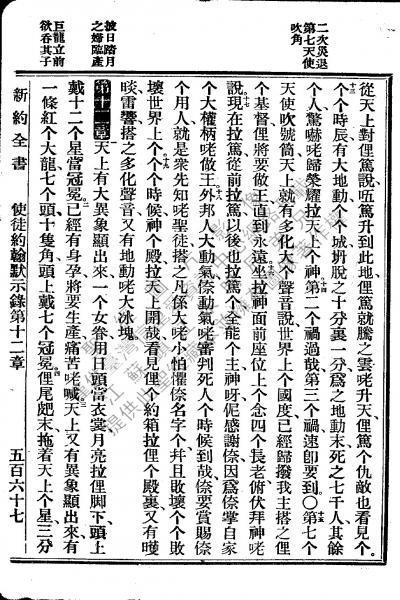 二次災退
第七天使
吹角
披日踏月
之婦臨產
巨龍立前
欲吞其子
從天上對俚篤說、㑚篤升到此地、俚篤就騰之雲咾升天、俚篤个仇敵也看見个。
十三个時辰有大地動、个个城坍脫之十分裏一分、爲之地動末死之七千人、其餘
个人驚嚇咾歸榮耀拉天上个神。十四第二个禍過哉、第三个禍速卽要到。○十五第七个
天使吹號筒、天上就有多化大个聲音說、世界上个國度已經歸撥我主搭之俚
个基督、俚將要做王直到永遠。十六坐拉神面前座位上个念四个長老、俯伏拜神咾
說、十七現在拉篤從前拉篤以後也拉篤个全能个主神呀、伲感謝倷、因爲倷掌自家
个大權柄咾做王、十八外邦人大動氣、倷動氣咾審判死人个時候到哉、倷要賞賜倷
个用人、就是衆先知咾聖徒、搭之凡係大咾小怕懼倷名字个、幷且敗壞个个敗
壞世界上个、十九个个時候神个殿拉天上開哉、看見俚个約箱拉俚个殿裏、又有
睒雷響搭之多化聲音、又有地動咾大冰塊。
第十二章 天上有大異象顯出來、一个女眷用日頭當衣裳、月亮拉俚脚下、頭上
戴十二个星當冠冕、二已經有身孕將要生產、痛苦咾喊、三天上又有異象顯出來、有
一條紅个大龍、七个頭十隻角、頭上戴七个冠冕、四俚尾末拖着天上个星三分
新約全書 使徒約翰默示錄第十二章 五百六十七